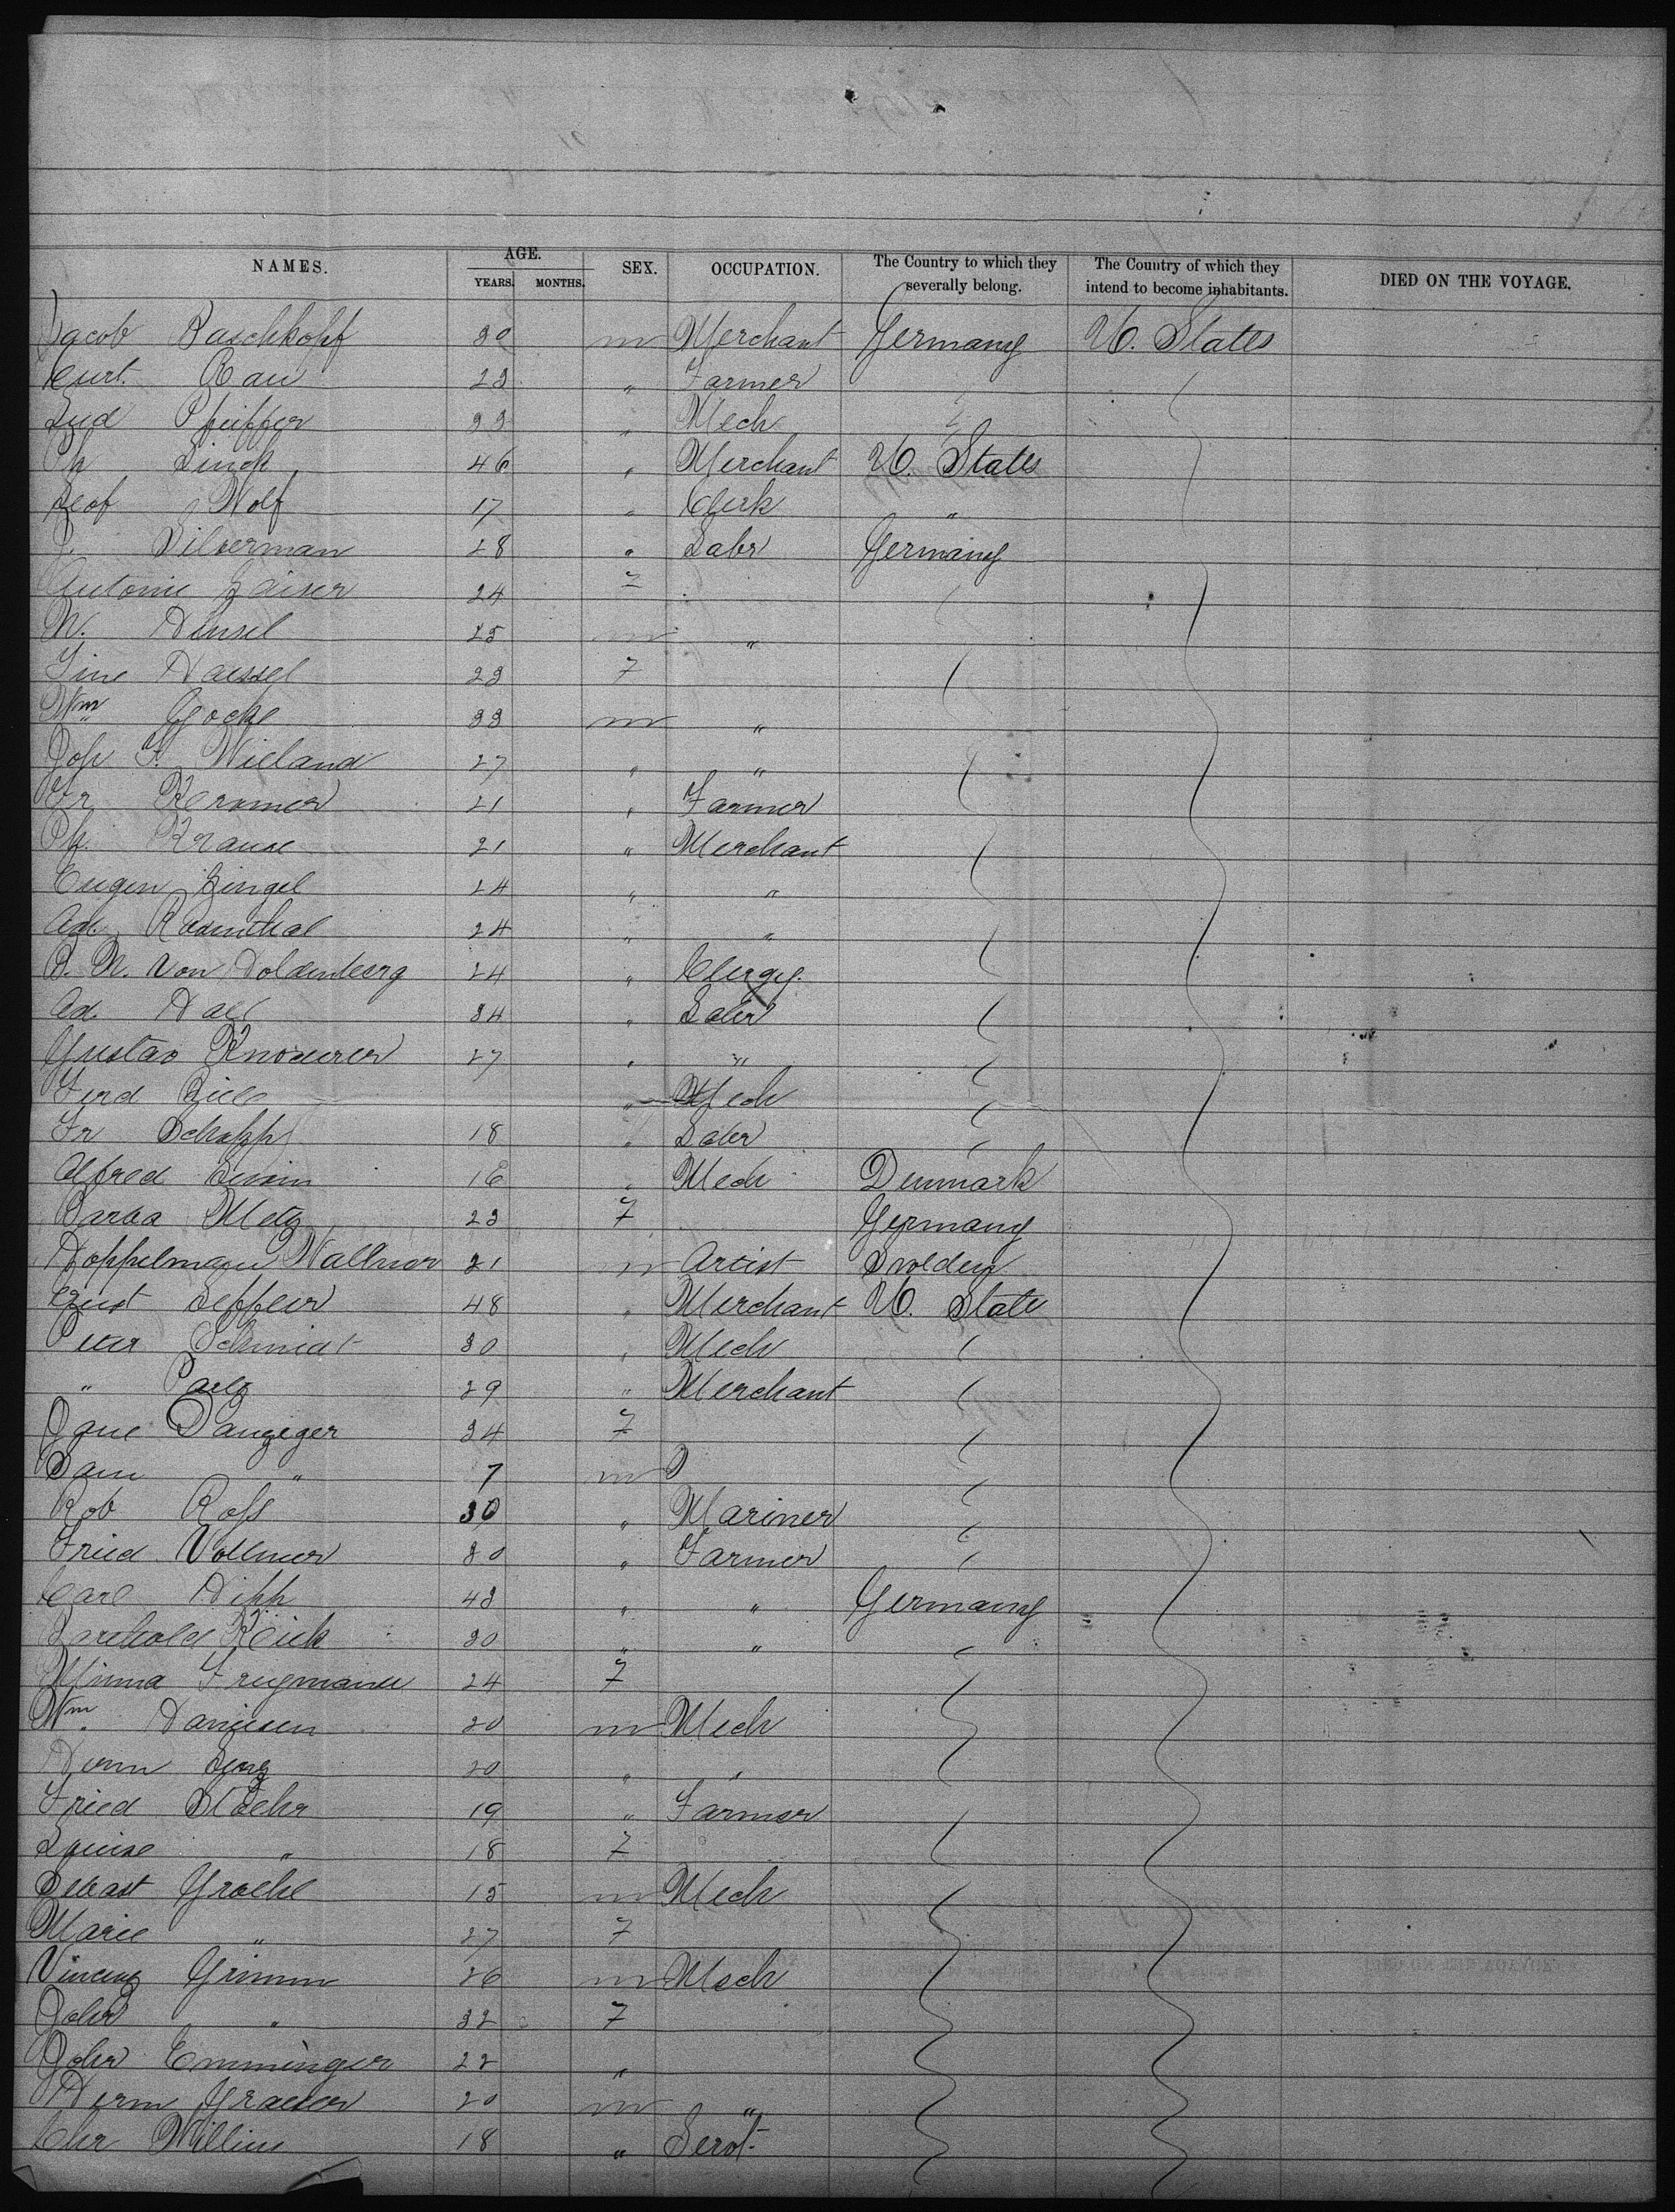 NAMES. AGE. SEX. OCCUPATION. The Country to which they severally belong. The Country of which they intend to become inhabitants. DIED ON THE VOYAGE.
YEARS. MONTHS.
Jacob Raschkopf 30 m Merchant Germany U. States
Curt. Rau 23 " Farmer
Lud Pfeiffer 33 " Mech
Ph Singh 46 " Merchant U. States
Leof Wolf 17 " Clerk "
J. Silverman 28 " Labr Germany
Antonie Kaiser 24 7
W. Hensel 25 m "
Line Haessel 23 7
Wm Gocke 33 m "
Joh F. Wieland 27 " "
Fr Kramer 21 " Farmer
Ph. Krause 21 " Merchant
Eugen Zingel 24 " "
Ad. Rosenthal 24 " "
B. W. von Doldenberg 24 " Clergy.
Ad. 34 " Labr
Gustav Knoderer 27 " "
Ferd " Mech
Fr Schopp 18 " Labr
Alfred 16 " Mech Denmark
Barba Metz 23 7 Germany
Hoppelmann Wallner 21 m Artist Sweden
Ernst Seffler 48 " Merchant U. State
Peter Schmidt 30 " Mech
" 29 " Merchant
Jane Danziger 34 7
Sam " 7 m
Rob Ross 30 " Mariner
Fried Vollmer 30 " Farmer
Carl Hipp 43 " " Germany
30 " "
Minna 24 7
Wm. 20 m Mech
Herm 20 " "
Fried Stoehr 19 " Farmer
Louise " 18 7
Sebast Groehl 15 m Mech
Marie " 27 7
Vincenz Grimm 26 m Mech
Joh " 32 7
Joh Emminger 22 "
Herm 20 m "
Chr Willius 18 " Servt.